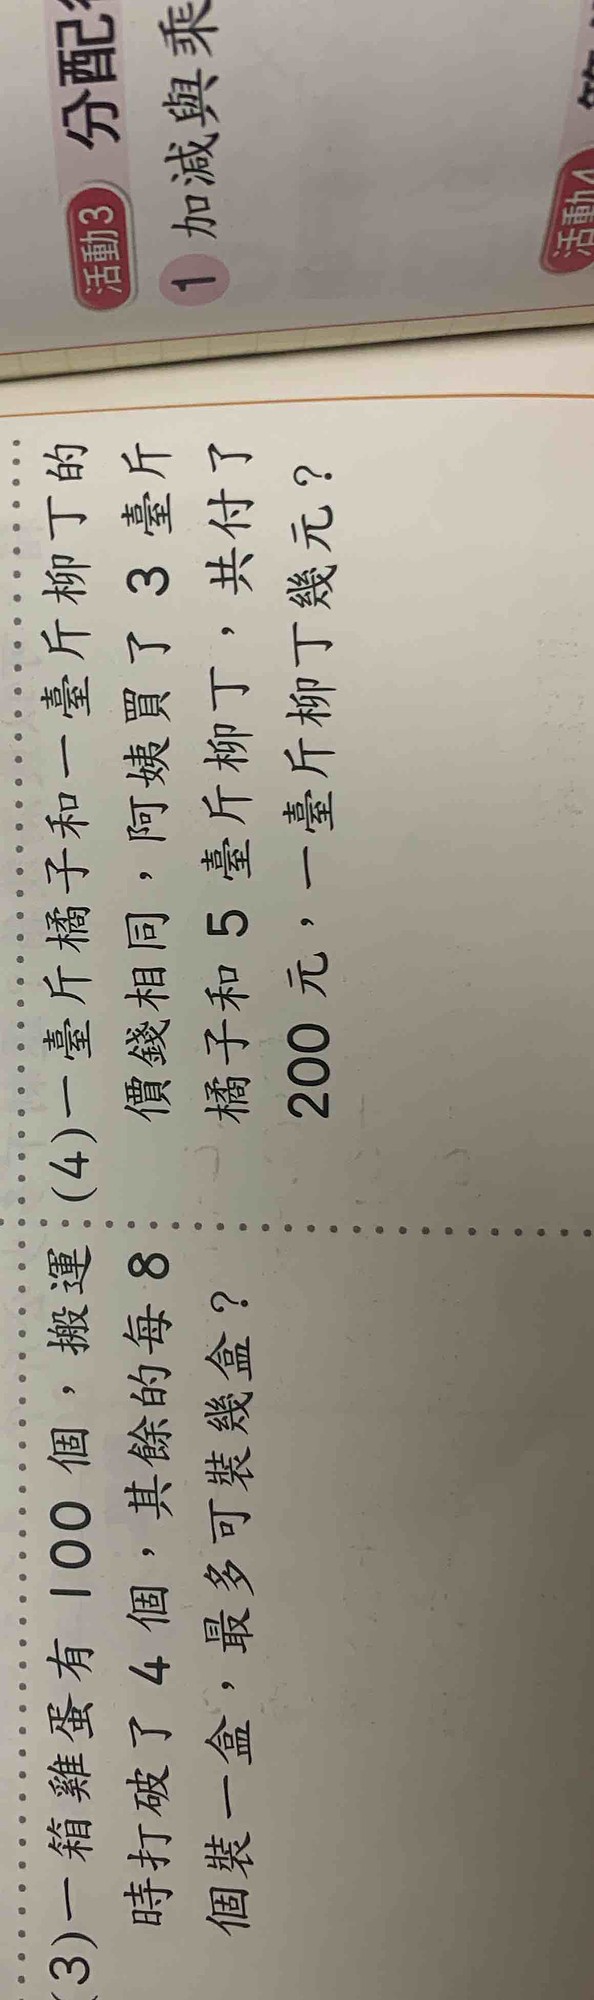 (3)一箱雞蛋有 100 個，搬運
時打破了 4 個，其餘的每 8
個裝一盒，最多可裝幾盒？
(4)一臺斤橘子和一臺斤柳丁的
價錢相同，阿姨買了 3 臺斤
橘子和 5 臺斤柳丁，共付了
200 元，一臺斤柳丁幾元？
活動3 分配
1 加減與乘
活動4